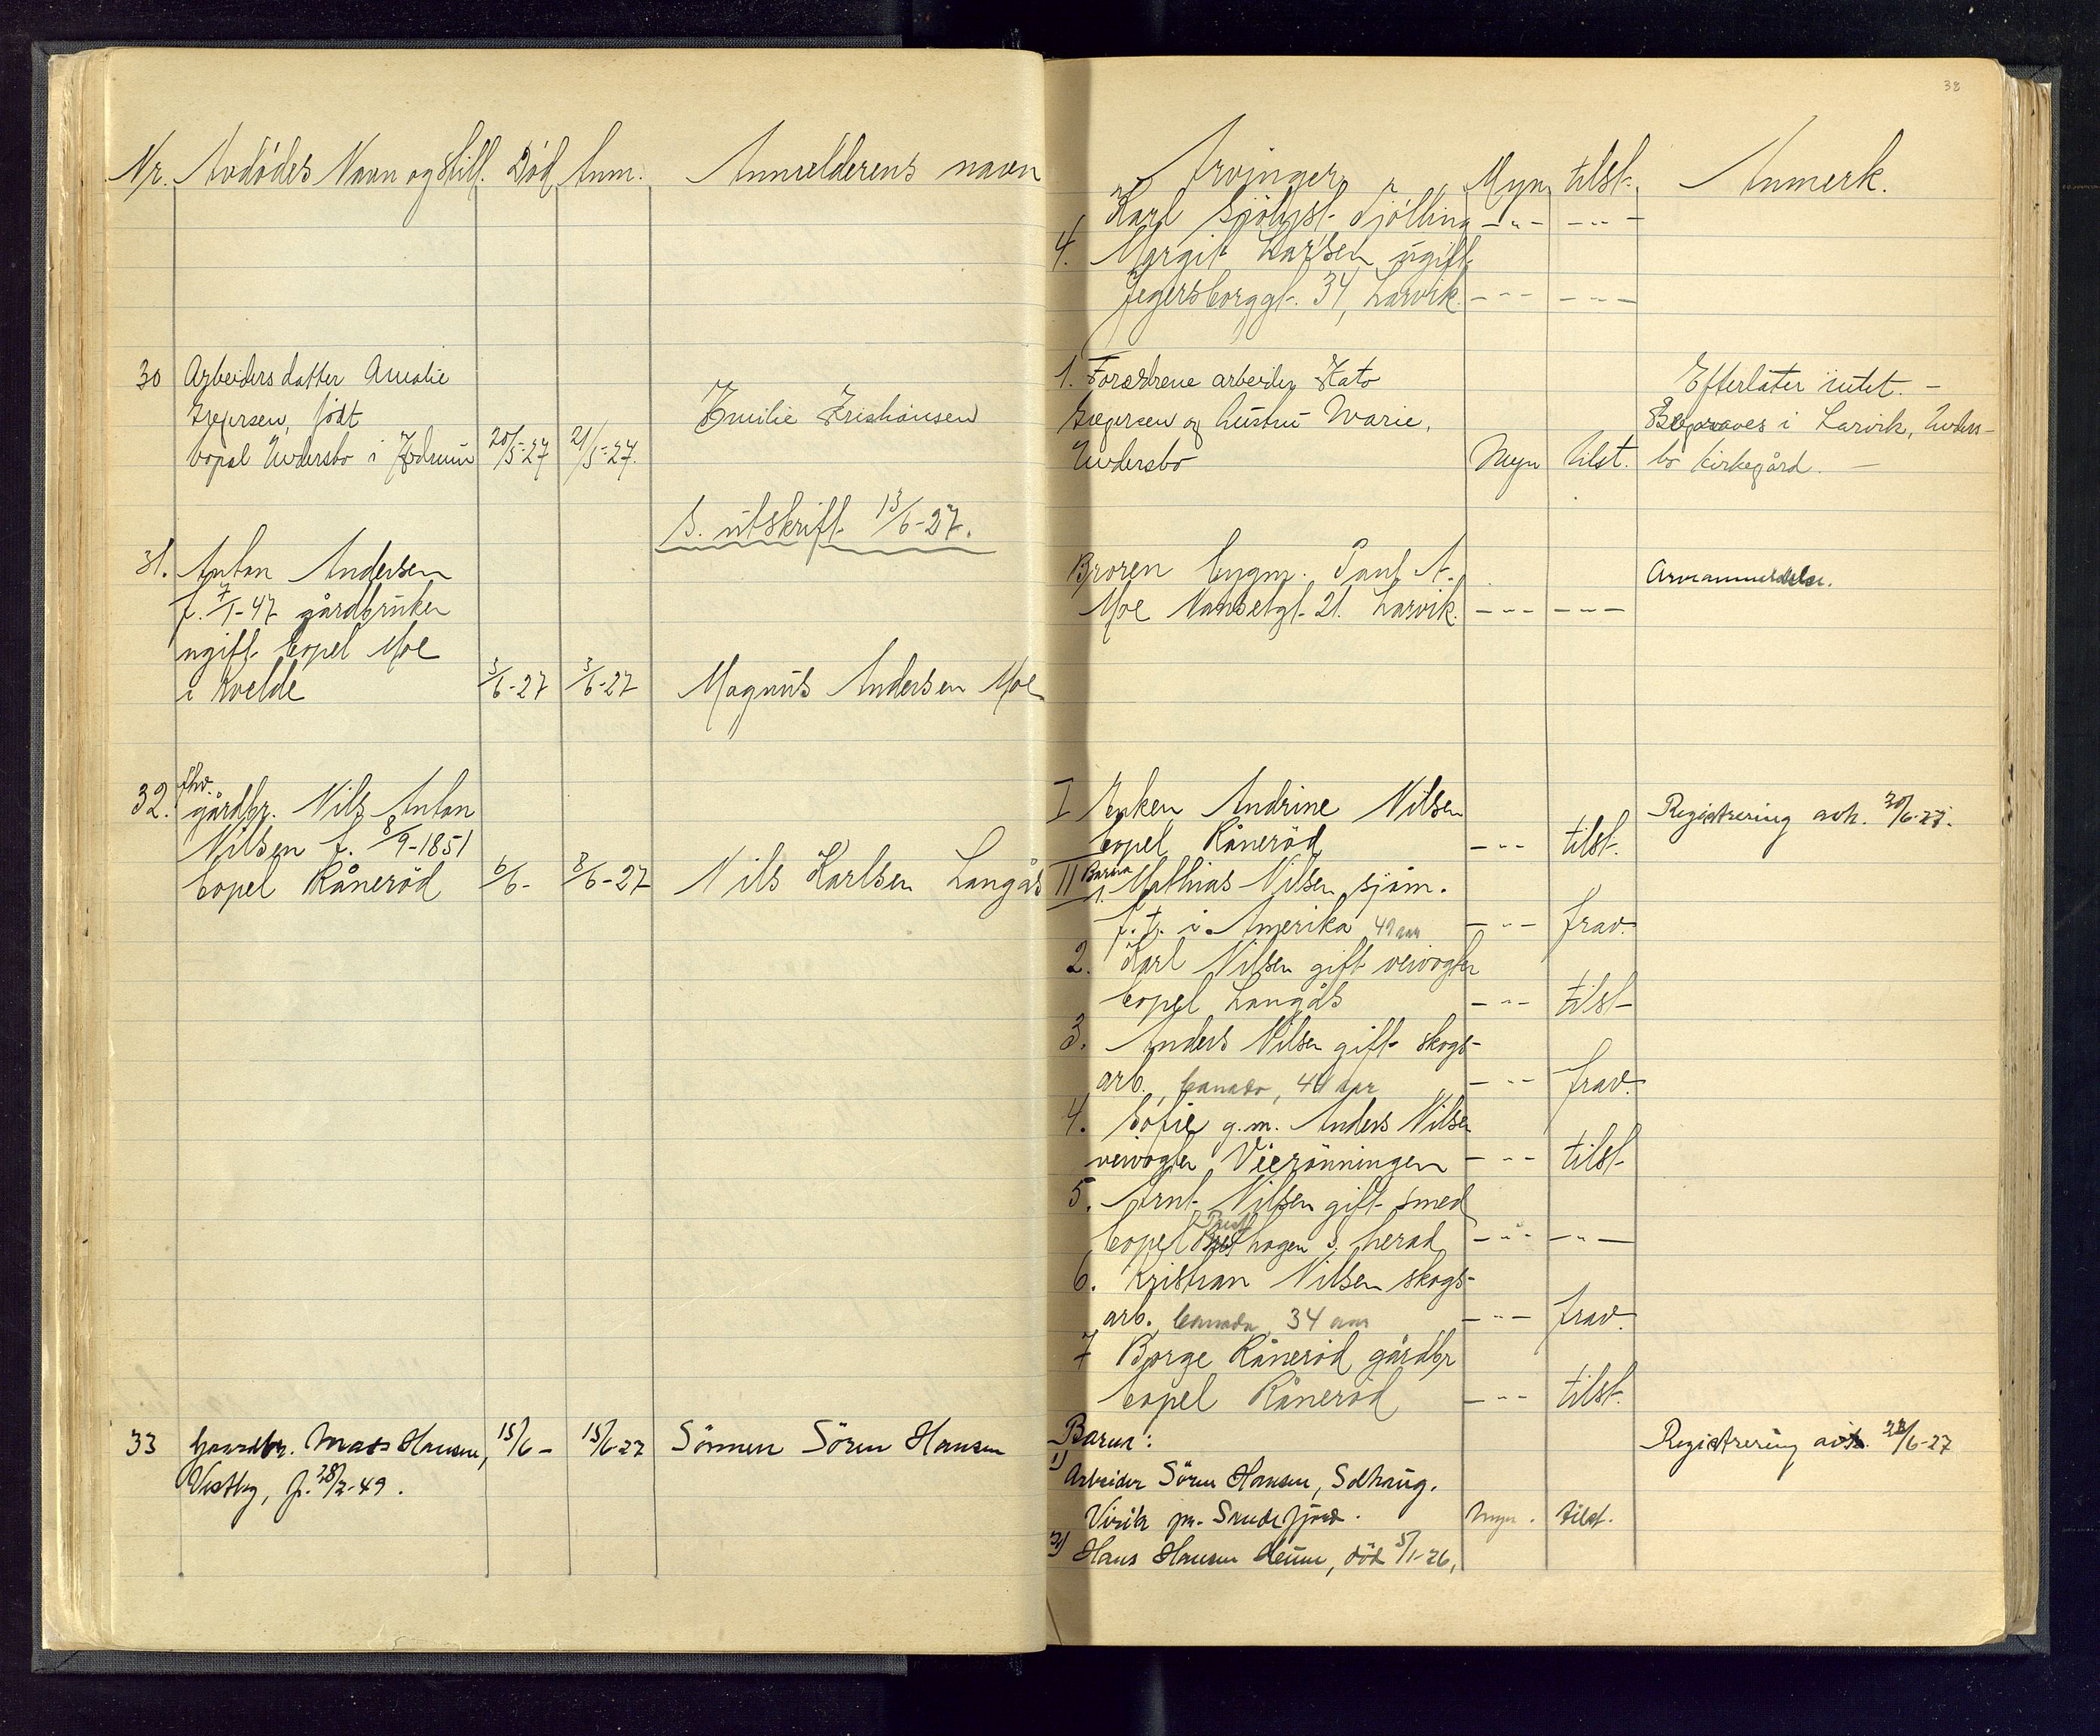 Nr. Avdödes Navn og still. Död Anm. Anmelderens navn
30 Arbeiders datter Amalie
født
bopel Undersbo i Hedrum 20/5-27 21/5-27. Emilie
S. utskrift 13/6-27.
31. Anton Andersen
f. 7/1-47 gårdbruker
ugift bopel Moe
i Kvelde 3/6-27 3/6-27 Magnus Andersen Moe
32. fhv.
gårdbr. Nils Anton
Nilsen f. 8/9-1851
bopel Rånerød 6/6- 8/6-27 Nils Karlsen Langås
33 Gaardbr. Mats Hansen, 15/6- 15/6-27 Sönnen Sören Hansen
Vestby, f. 28/2-49.
38
Arvinger Myn tilst. Anmerk.
Karl Sjölyst, Tjölling -"- -"-
4. Margit Larsen ugift
Jegersborggt. 34, Larvik. -"- -"-
1. Forældrene arbeider Kato Efterlater intet. -
og hustru Marie, Begraves i Larvik, Unders-
Undersbo Myn tilst. bo kirkegård. -
Broren bygm. Paul A. Arveanmeldelse.
Moe Nansetgt. 21. Larvik. -"- -"-
I Enken Andrine Nilsen Registrering avh. 20/6-27.
bopel Rånerød -"- tilst.
II Barna
1. Mathias Nilsen sjöm.
f.t. i Amerika 49 aar -"- frav.
2. Karl Nilsen gift veivogter
bopel Langås -"- tilst
3. Anders Nilsen gift skogs-
arb., Canada, 40 aar -"- frav.
4. Sofie g.m. Anders Nilsen
veivogter Veerönningen -"- tilst
5. Arnt Nilsen gift smed
bopel hagen S. herad -"- -"-
6. Kristian Nilsen skogs-
arb. Canada 34 aar -"- frav.
7 Borge Rånerød gårdbr
bopel Rånerød -"- tilst.
Barna: Registrering avh. 22/6-27
1) Arbeider Sören Hansen, Solhaug.
Virik pr. Sandefjord. Myn. tilst.
2) Hans Hansen død 5/1-26,